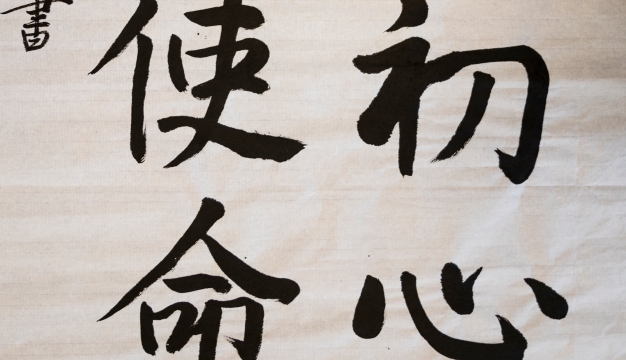 初心
使命
書